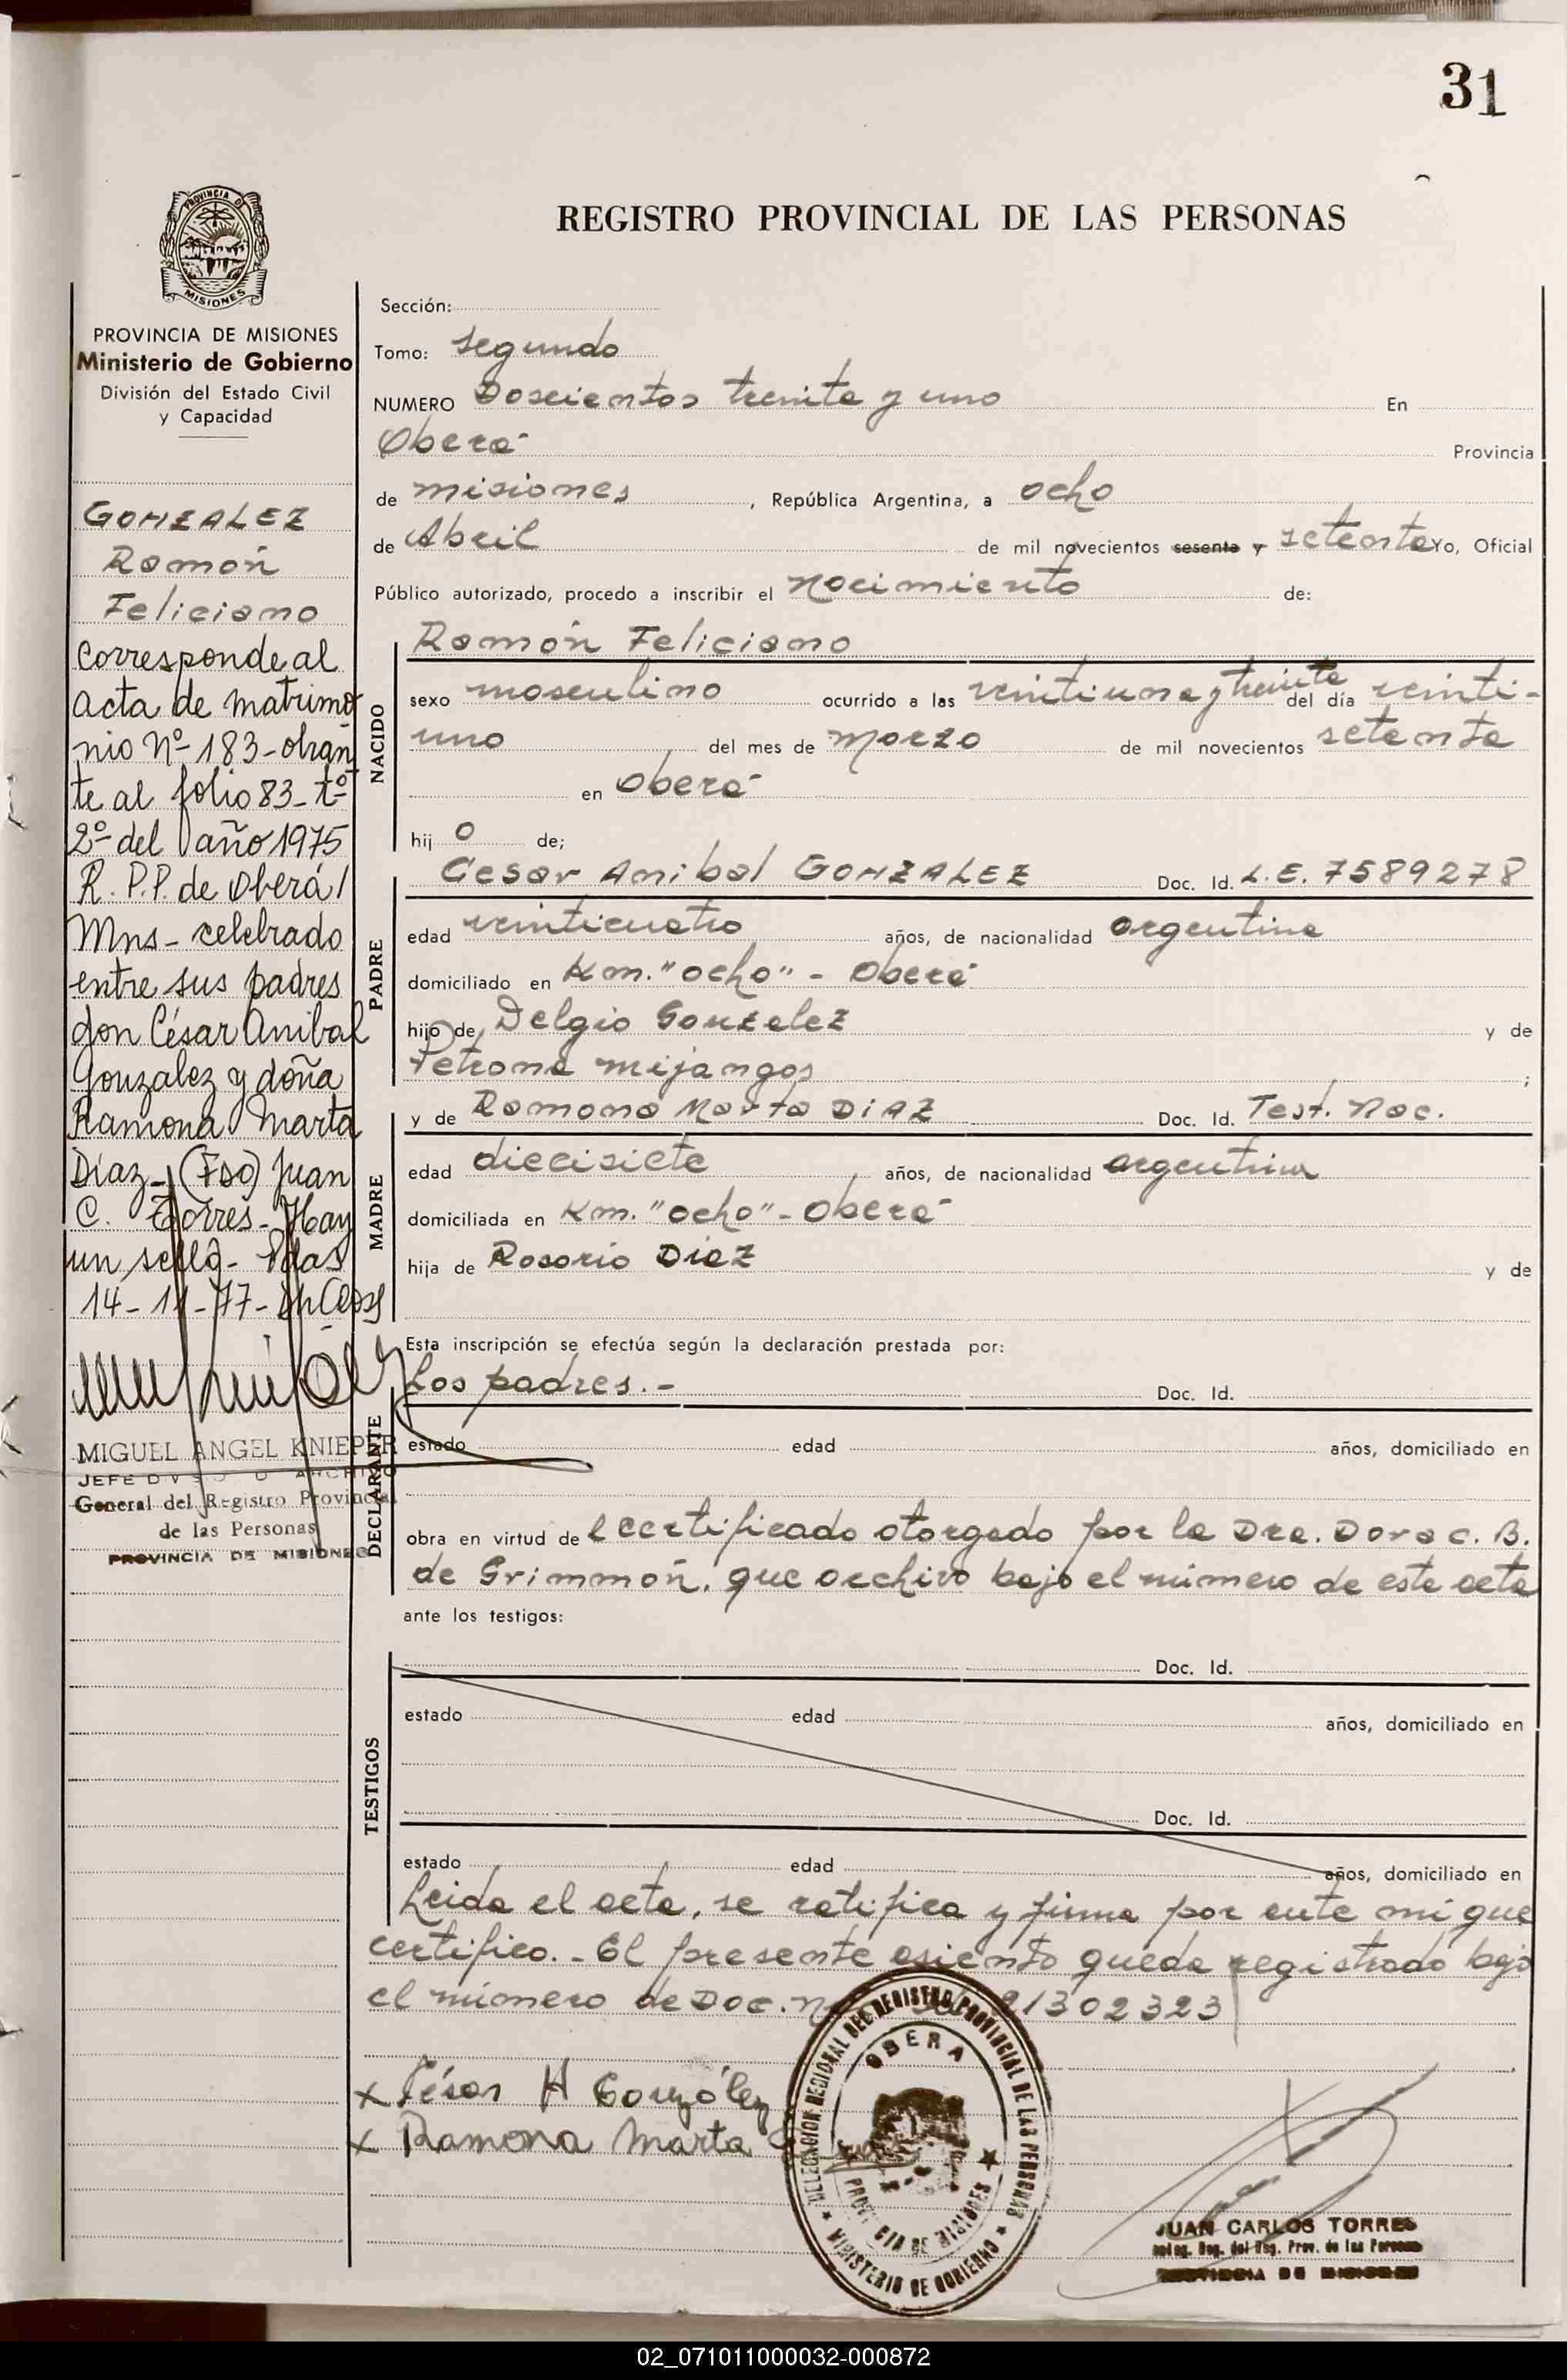 31
REGISTRO PROVINCIAL DE LAS PERSONAS
PROVINCIA DE
MISIONES
PROVINCIA DE MISIONES
Ministerio de Gobierno
División del Estado Civil
y Capacidad
GONZALEZ
Ramón
Feliciano
Corresponde al
acta de matrimo
nio Nº 183-obran
te al folio 83-tº
2º del año 1975
R.P.P. de Oberá/
Mns- celebrado
entre sus padres
don César Anibal
Gonzalez y doña
Ramona Marta
Díaz- (Fdo) Juan
C. Torres- Hay
un sello- Pdas
14-11-77-
MIGUEL ANGEL KNIEPER
JEFE ARCHIVO
General del Registro Provincial
de las Personas
PROVINCIA DE MISIONES
Sección:
Tomo: Segundo
NUMERO Doscientos treinta y uno En
Oberá Provincia
de misiones, República Argentina, a ocho
de Abril de mil novecientos sesenta y setenta Yo, Oficial
Público autorizado, procedo a inscribir el nacimiento de:
NACIDO
Ramón Feliciano
sexo masculino ocurrido a las veintiuna y treinta del día veinti-
uno del mes de marzo de mil novecientos setenta
en Oberá
hij o de;
PADRE
Cesar Anibal GONZALEZ Doc. Id. L.E. 7589278
edad veinticuatro años, de nacionalidad argentina
domiciliado en Km. "ocho" - Oberá
hijo de Delgio Gonzalez y de
Petrona mijangos ;
MADRE
y de Ramona Marta DIAZ Doc. Id. Test. Nac.
edad diecisiete años, de nacionalidad argentina
domiciliada en Km. "ocho" - Oberá
hija de Rosario Diaz y de
Esta inscripción se efectúa según la declaración prestada por:
DECLARANTE
Los padres.- Doc. Id.
estado edad años, domiciliado en
obra en virtud de l certificado otorgado por la Dra. Dora C. B.
de Grimmon, que archivo bajo el número de este acta
ante los testigos:
TESTIGOS
Doc. Id.
estado edad años, domiciliado en
Doc. Id.
estado edad años, domiciliado en
Leida el acta, se ratifica y firma por ante mi que
certifico.- El presente asiento queda registrado bajo
el número de Doc. 21302323
x César A González
x Ramona Marta
DELEGACION REGIONAL DEL REGISTRO PROVINCIAL DE LAS PERSONAS
OBERA
PROVINCIA DE MISIONES
MINISTERIO DE GOBIERNO
JUAN CARLOS TORRES
Deleg. Reg. del Reg. Prov. de las Personas
PROVINCIA DE MISIONES
02_071011000032-000872